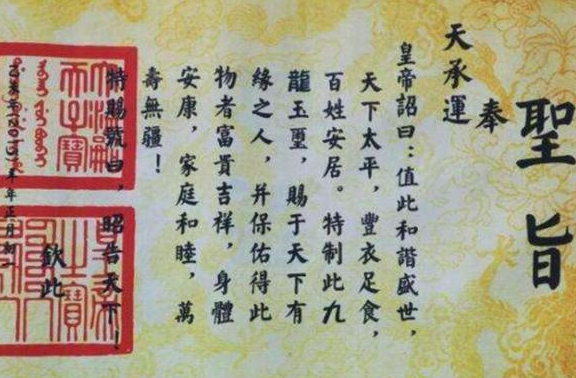 聖旨
奉
天承運
皇帝詔曰：值此和諧盛世，
天下太平，豐衣足食，
百姓安居。特制此九
龍玉璽，賜于天下有
緣之人，并保佑得此
物者富貴吉祥，身體
安康，家庭和睦，萬
壽無疆！
特賜號曰，昭告天下！
欽此
年正月初
大清嗣
天子寶
之寶